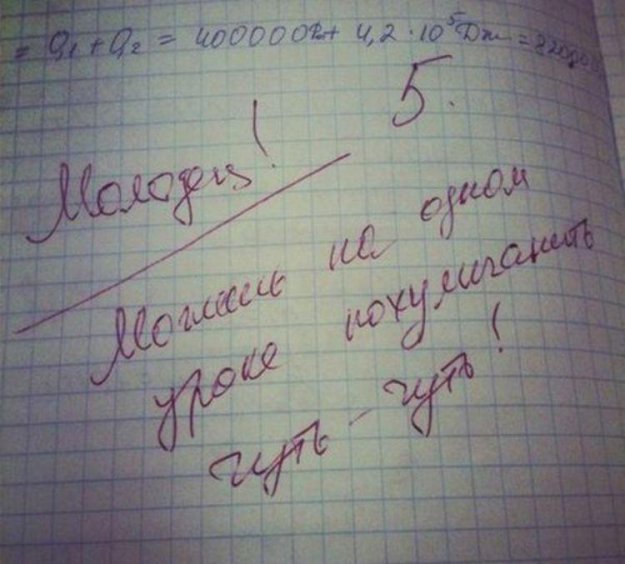 = Q₁ + Q₂ = 400000 Дж + 4,2 · 10⁵ Дж = 820000
5.
Молодец!
Можешь на одном
уроке похулиганить
чуть-чуть!